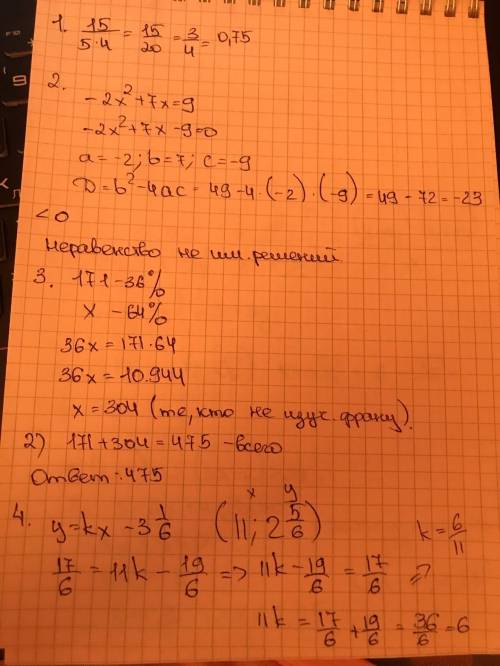 1. 15/5·4 = 15/20 = 3/4 = 0,75
2.
-2x²+7x=9
-2x²+7x-9=0
a=-2; b=7; c=-9
D=b²-4ac=49-4·(-2)·(-9)=49-72=-23
<0
неравенство не им. решений
3. 171-36%
x -64%
36x=171·64
36x=10.944
x=304 (те, кто не изуч. франц).
2) 171+304=475 -всего
Ответ: 475
x y
4. y=kx-3 1/6 (11; 2 5/6) k=6/11
17/6=11k-19/6 => 11k-19/6=17/6 =>
11k=17/6+19/6=36/6=6